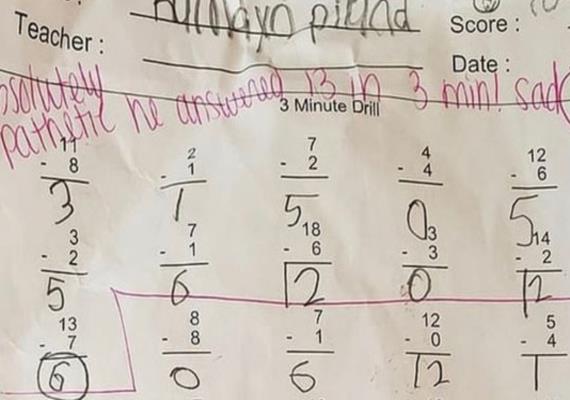 piland
Teacher :
Score :
Date :
absolutely
pathetic he answered 13 in 3 min! sad
3 Minute Drill
11 2 7 4 12
- 8 - 1 - 2 - 4 - 6
3 1 5 0 5
3 7 18 3 14
- 2 - 1 - 6 - 3 - 2
5 6 12 0 12
13 8 7 12 5
- 7 - 8 - 1 - 0 - 4
6 0 6 12 1